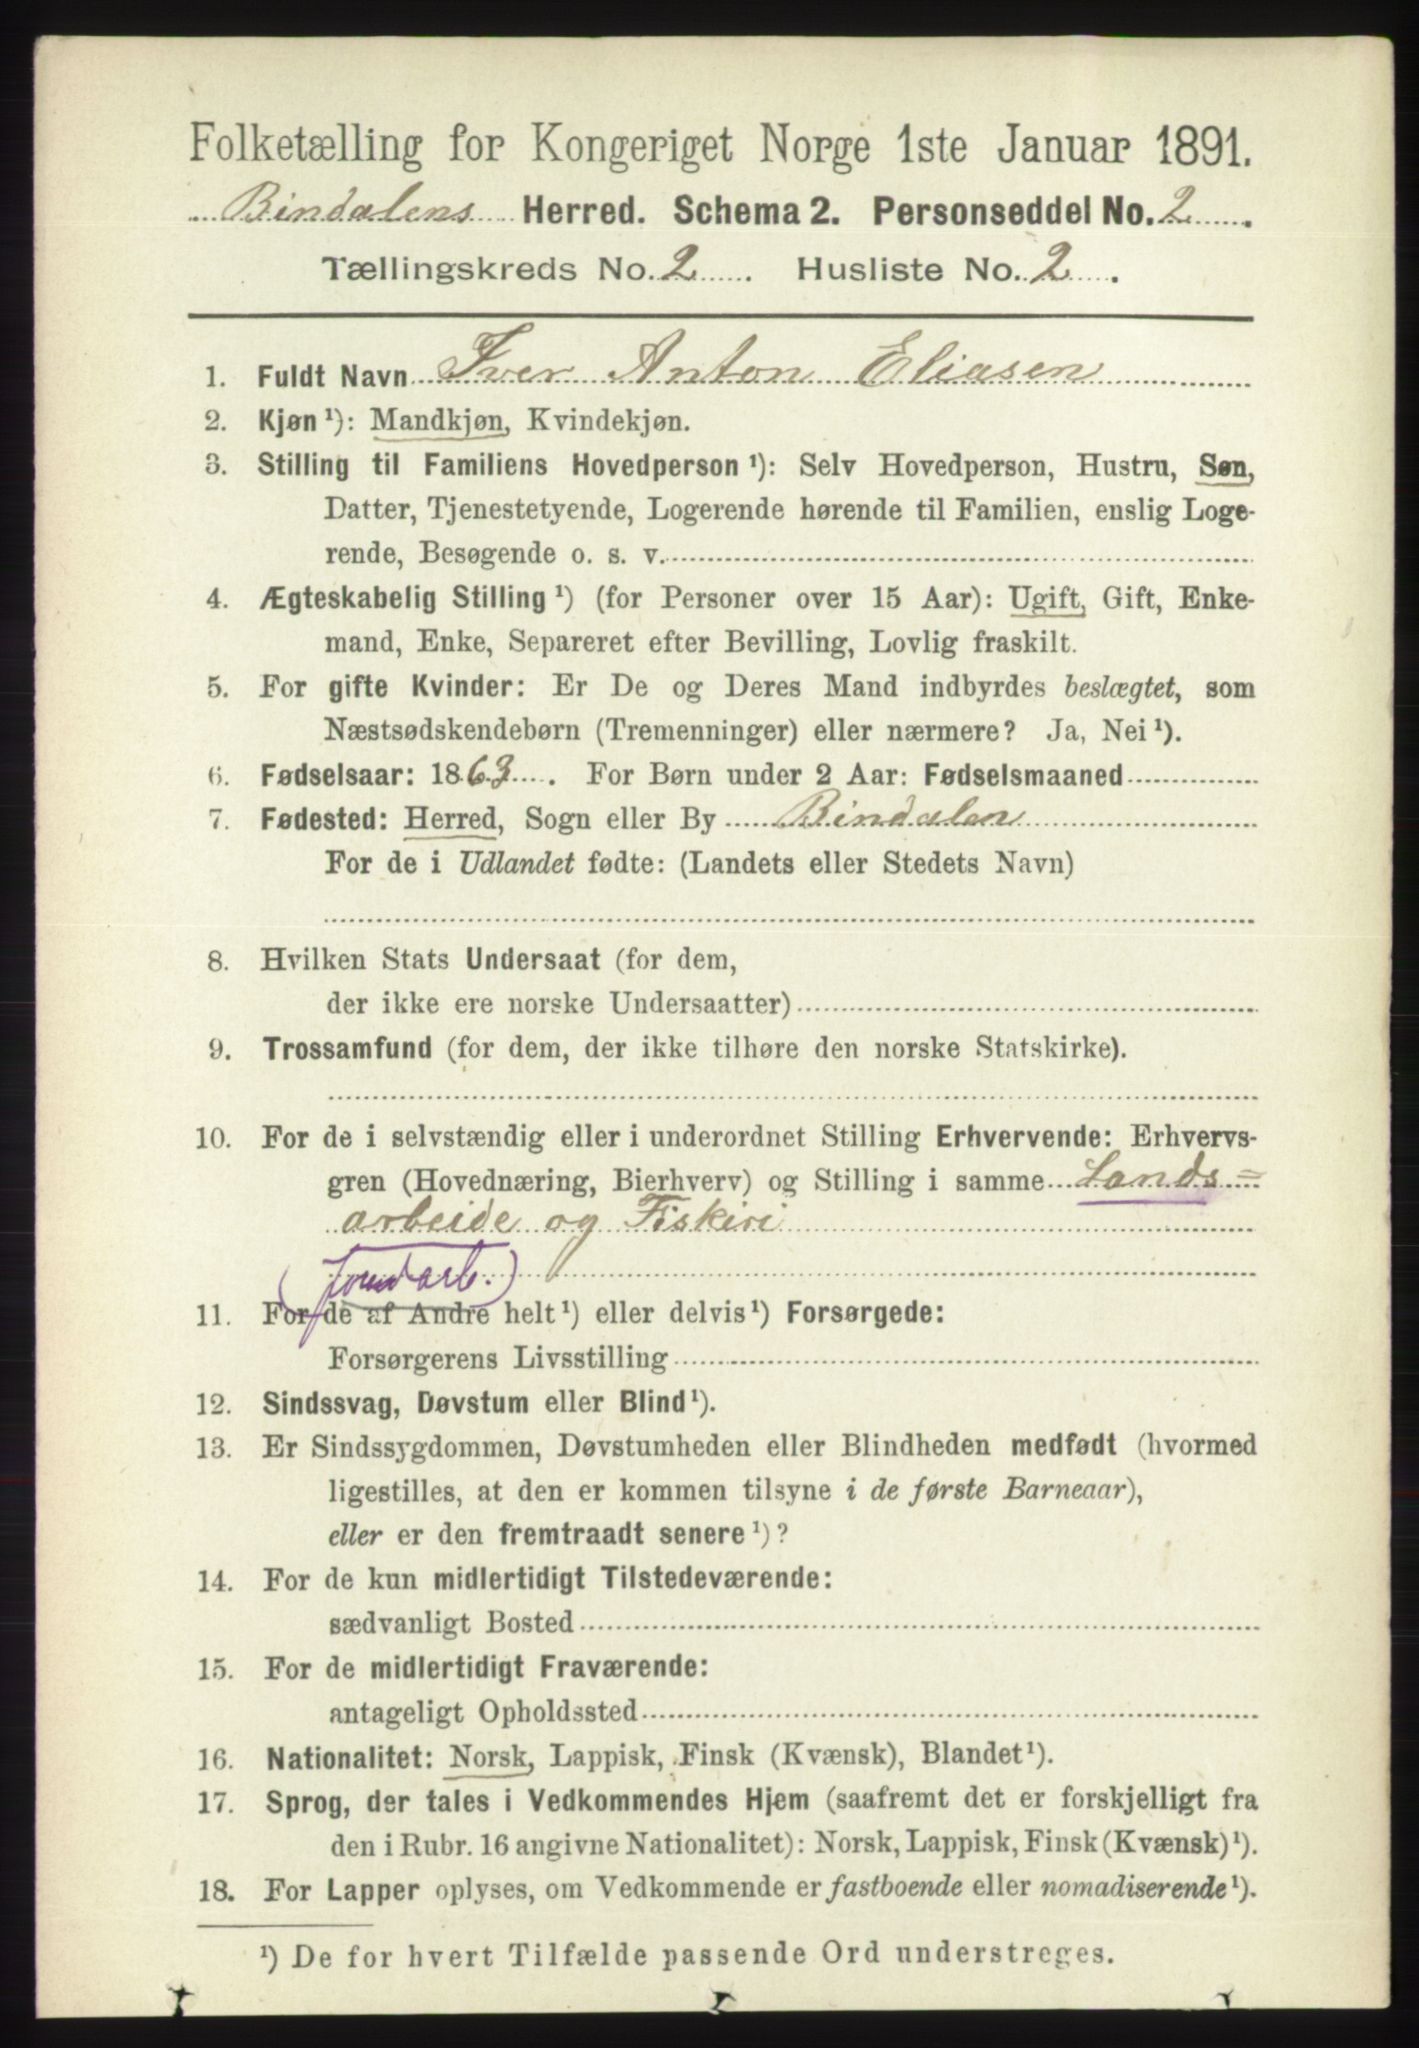 Folketælling for Kongeriget Norge 1ste Januar 1891.
Bindalens Herred. Schema 2. Personseddel No. 2.
Tællingskreds No. 2. Husliste No. 2.
1. Fuldt Navn Iver Anton Eliasen
2. Kjøn ¹): Mandkjøn, Kvindekjøn.
3. Stilling til Familiens Hovedperson ¹): Selv Hovedperson, Hustru, Søn,
Datter, Tjenestetyende, Logerende hørende til Familien, enslig Loge-
rende, Besøgende o. s. v.
4. Ægteskabelig Stilling ¹) (for Personer over 15 Aar): Ugift, Gift, Enke-
mand, Enke, Separeret efter Bevilling, Lovlig fraskilt.
5. For gifte Kvinder: Er De og Deres Mand indbyrdes beslægtet, som
Næstsødskendebørn (Tremenninger) eller nærmere? Ja, Nei ¹).
6. Fødselsaar: 1863. For Børn under 2 Aar: Fødselsmaaned
7. Fødested: Herred, Sogn eller By Bindalen
For de i Udlandet fødte: (Landets eller Stedets Navn)
8. Hvilken Stats Undersaat (for dem,
der ikke ere norske Undersaatter)
9. Trossamfund (for dem, der ikke tilhøre den norske Statskirke).
10. For de i selvstændig eller i underordnet Stilling Erhvervende: Erhvervs-
gren (Hovednæring, Bierhverv) og Stilling i samme Lands=
arbeide og Fiskeri
(jordarb.)
11. For de af Andre helt ¹) eller delvis ¹) Forsørgede:
Forsørgerens Livsstilling
12. Sindssvag, Døvstum eller Blind ¹).
13. Er Sindssygdommen, Døvstumheden eller Blindheden medfødt (hvormed
ligestilles, at den er kommen tilsyne i de første Barneaar),
eller er den fremtraadt senere ¹)?
14. For de kun midlertidigt Tilstedeværende:
sædvanligt Bosted
15. For de midlertidigt Fraværende:
antageligt Opholdssted
16. Nationalitet: Norsk, Lappisk, Finsk (Kvænsk), Blandet ¹).
17. Sprog, der tales i Vedkommendes Hjem (saafremt det er forskjelligt fra
den i Rubr. 16 angivne Nationalitet): Norsk, Lappisk, Finsk (Kvænsk) ¹).
18. For Lapper oplyses, om Vedkommende er fastboende eller nomadiserende ¹).
¹) De for hvert Tilfælde passende Ord understreges.